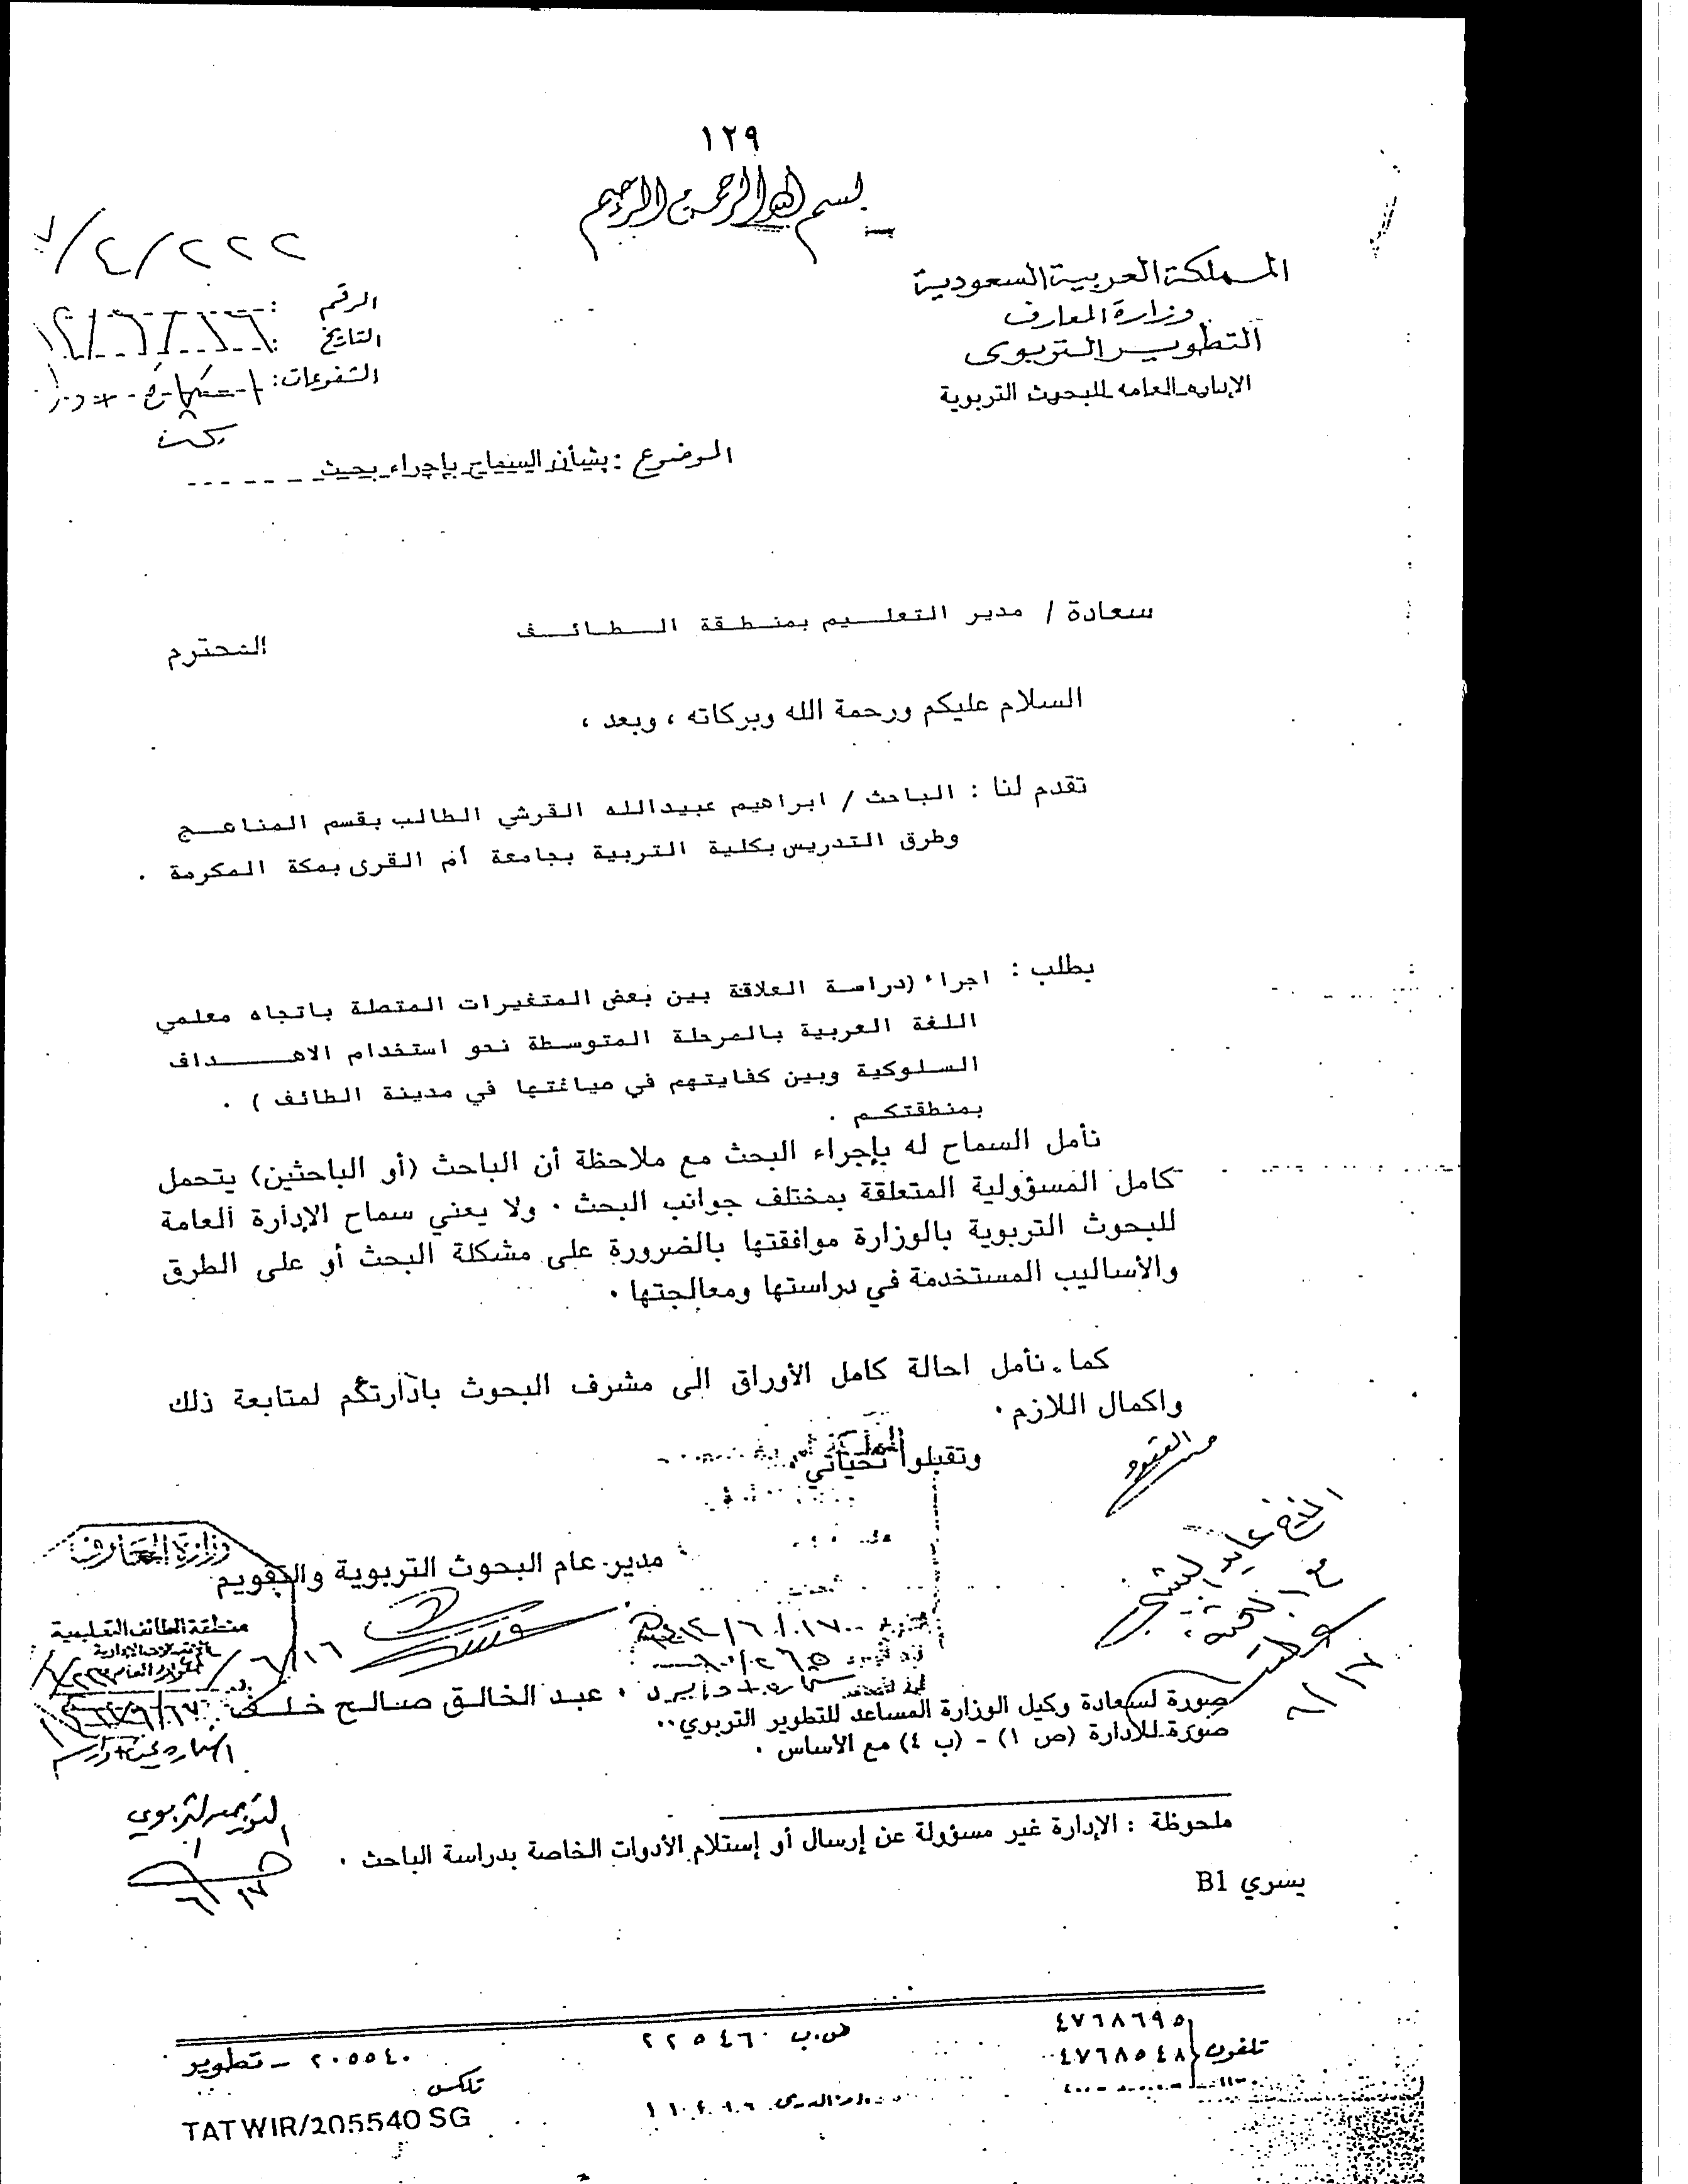 ١٢٩
بسم الله الرحمن الرحيم
المملكة العربية السعودية
وزارة المعارف
التطوير التربوى
الإداره العامه للبحوث التربوية
٧/٤/٢٢٢
الرقم :
التاريخ :
التفوعات :
بحث
الموضوع : بشأن السماح بإجراء بحث
سعادة / مدير التعليم بمنطقة الطائف المحترم
السلام عليكم ورحمة الله وبركاته ، وبعد ،
تقدم لنا : الباحث / ابراهيم عبيدالله القرشي الطالب بقسم المناهج
وطرق التدريس بكلية التربية بجامعة أم القرى بمكة المكرمة .
يطلب : اجراء (دراسة العلاقة بين بعض المتغيرات المتصلة باتجاه معلمي
اللغة العربية بالمرحلة المتوسطة نحو استخدام الاهداف
السلوكية وبين كفايتهم في صياغتها في مدينة الطائف ) .
بمنطقتكم .
نأمل السماح له بإجراء البحث مع ملاحظة أن الباحث (أو الباحثين) يتحمل
كامل المسؤولية المتعلقة بمختلف جوانب البحث . ولا يعني سماح الإدارة العامة
للبحوث التربوية بالوزارة موافقتها بالضرورة على مشكلة البحث أو على الطرق
والأساليب المستخدمة في دراستها ومعالجتها .
كما نأمل احالة كامل الأوراق الى مشرف البحوث بادارتكم لمتابعة ذلك
واكمال اللازم .
وتقبلوا تحياتي .
مدير عام البحوث التربوية والتقويم
وزارة المعارف
منطقة الطائف التعليمية
٦/١٦
د . عبد الخالق صالح خلف
صورة لسعادة وكيل الوزارة المساعد للتطوير التربوي ..
صورة للادارة (ص ١) - (ب ٤) مع الأساس .
٦/١٧
ملحوظة : الإدارة غير مسؤولة عن إرسال أو إستلام الأدوات الخاصة بدراسة الباحث .
٦/١٧
يسري B1
تلفون
٤٧٦٨٦٩٥
٤٧٦٨٥٤٨
ص.ب ٢٢٥٤٦٠
٢٠٥٥٤٠ - تطوير
تلكس
TATWIR/205540 SG